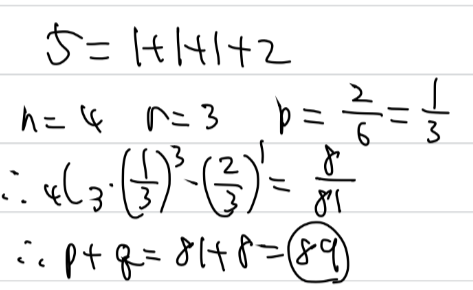 5 = 1+1+1+2
n = 4 r = 3 p = 2/6 = 1/3
∴ ₄C₃·(1/3)³·(2/3)¹ = 8/81
∴ p + q = 81+8 = 89